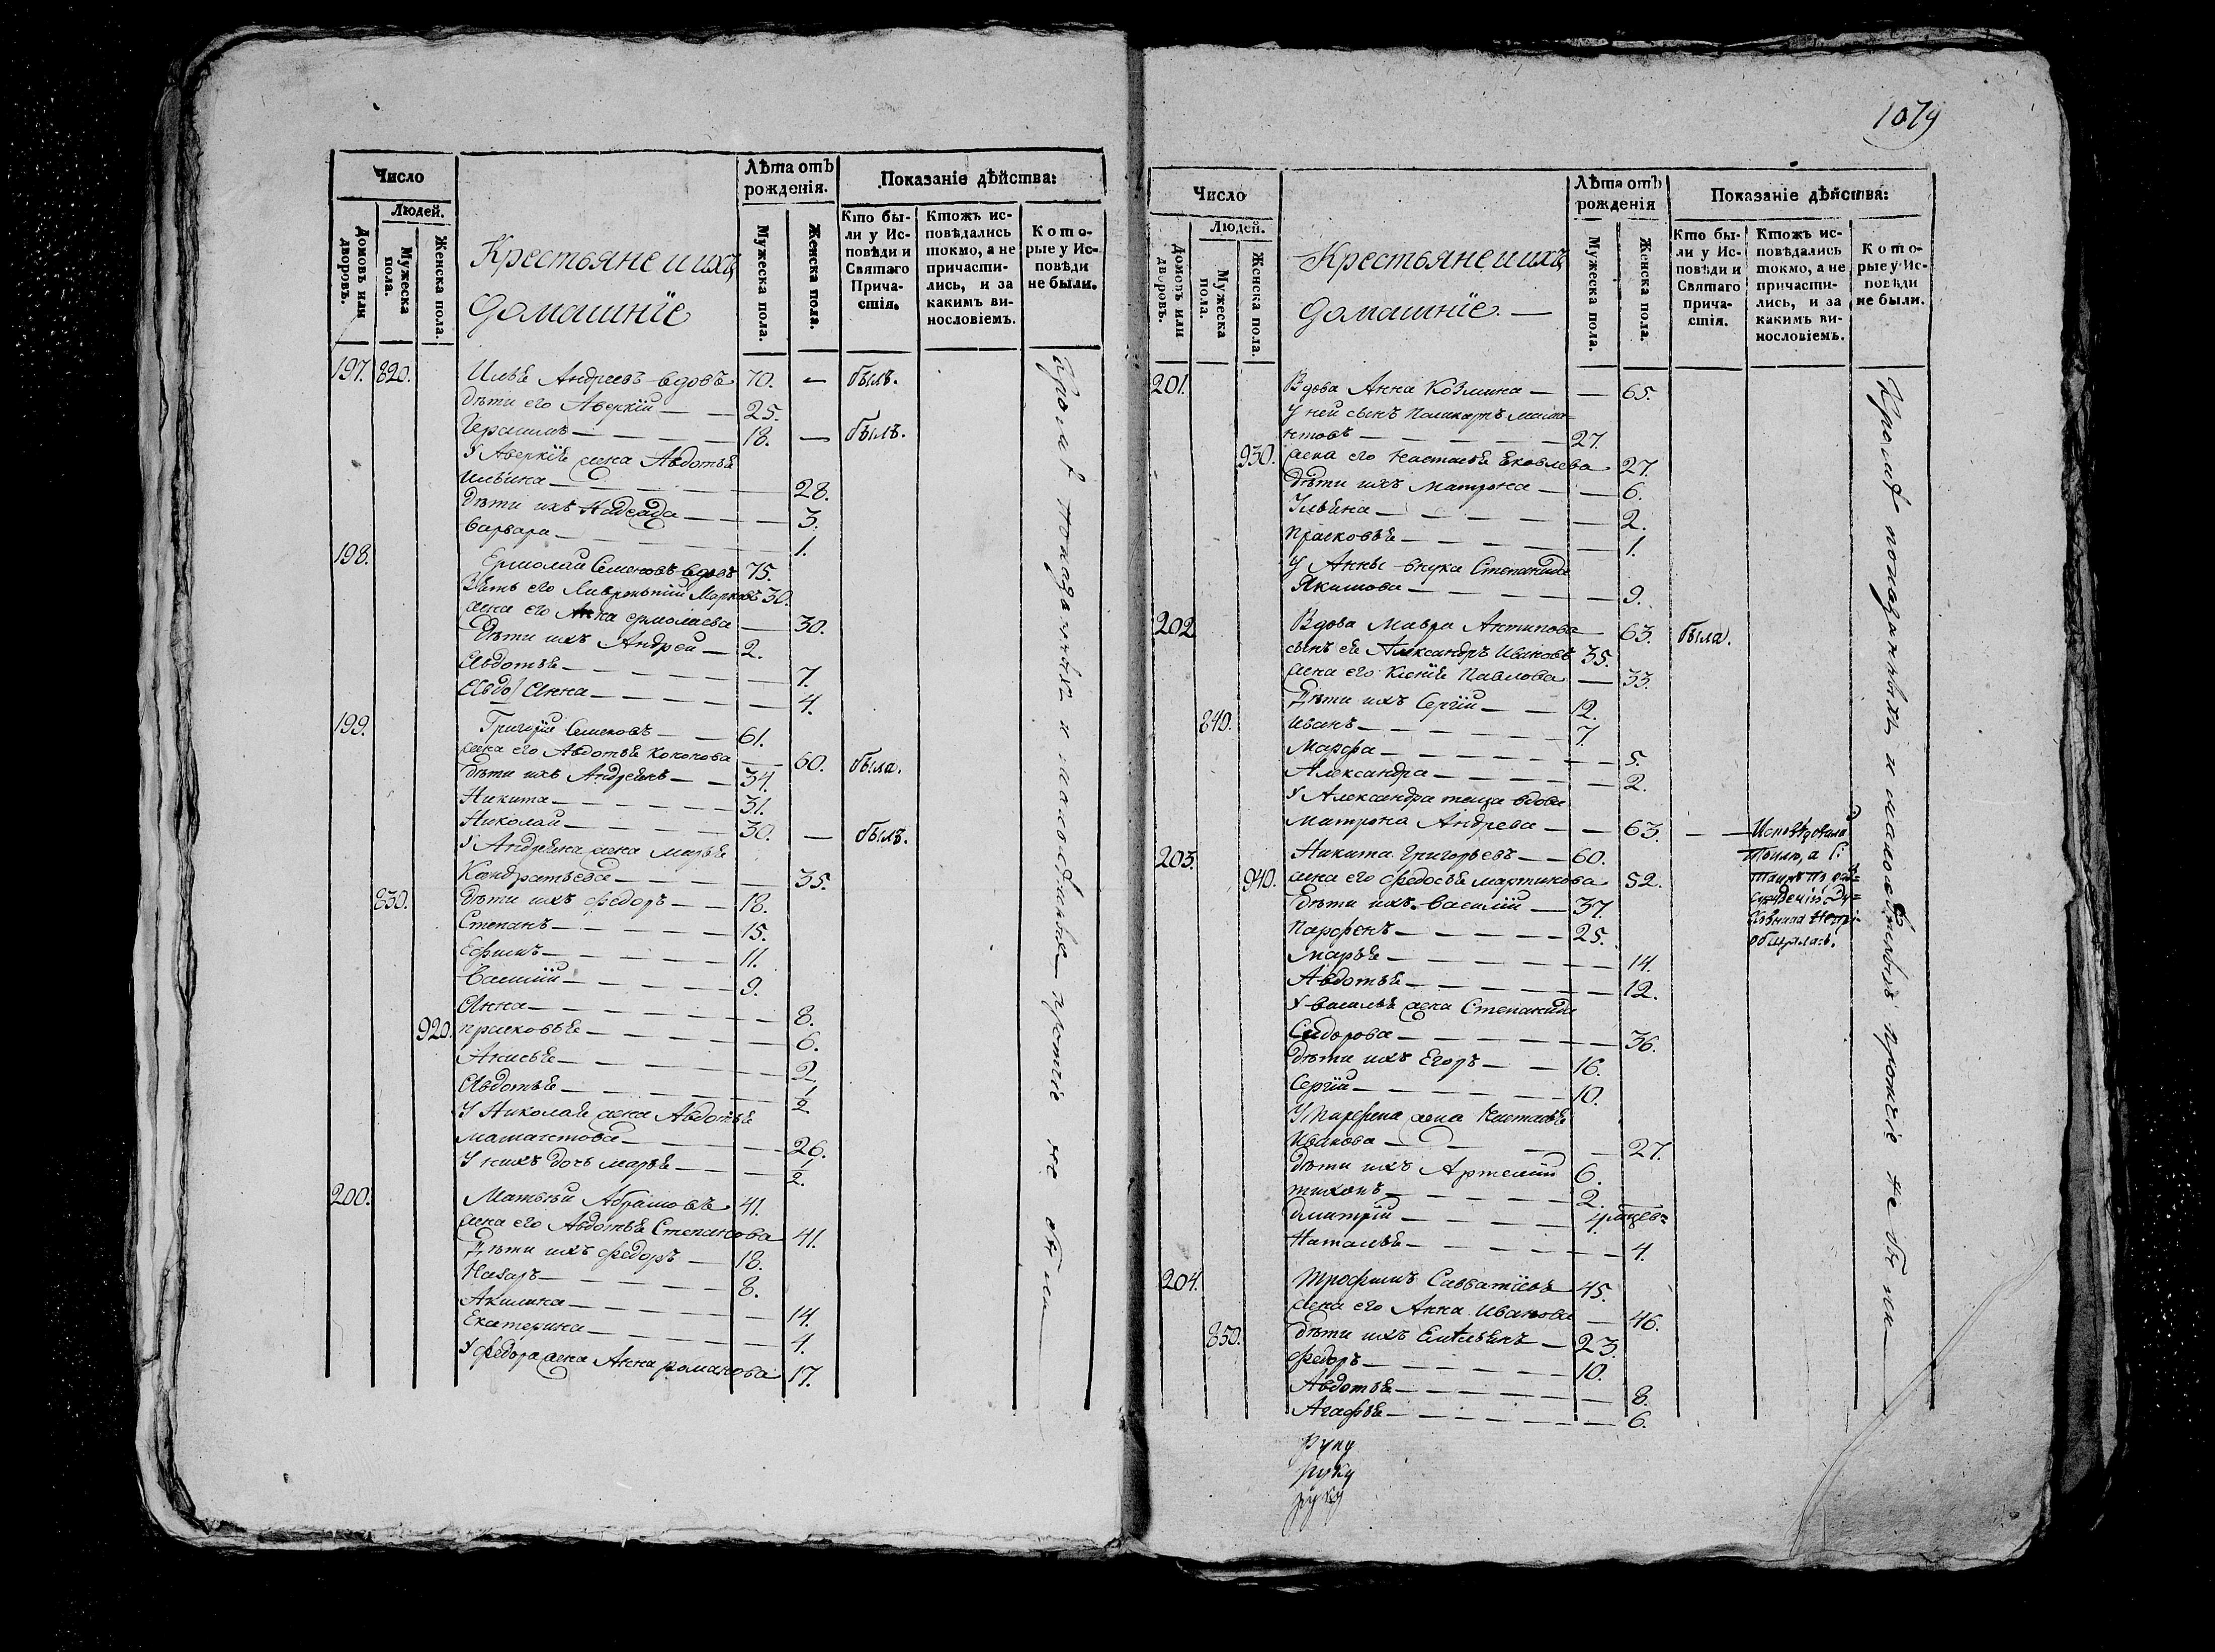 1079
Число
Лѣта отъ рожденія.
Показаніе дѣйства:
Людей.
Домовъ или дворовъ.
Мужеска пола.
Женска пола.
Крестьяне и ихъ
домашніе
Мужеска пола.
Женска пола.
Кто бы-
ли у Ис-
повѣди и
Святаго
Прича-
стія.
Ктожъ ис-
повѣдались
токмо, а не
причасти-
лись, и за
какимъ ви-
нословіемъ.
Кото-
рые у Ис-
повѣди
не были.
197. 820. Илья Андреевъ вдовъ 70. — былъ.
дѣти его Аверкій — — 25.
Герасимъ — — — — 18. — былъ.
У Аверкія жена Авдотья
Ильина — — — — 28.
дѣти ихъ Надежда — — — 3.
Варвара — — — — 1.
198. Ермолай Семеновъ вдовъ 75.
Зять его Лаврентий Марковъ 30.
жена его Анна ермолаева — 30.
Дѣти ихъ Андрей — 2.
Авдотья — — — — 7.
Анна — — — — 4.
199. Григорій Семеновъ — — 61.
жена его Авдотья Кононова — 60. была.
дѣти ихъ Андреянъ — — 34.
Никита — — — — 31.
Николай — — — — 30. — былъ.
У Андреяна жена Марья
Кондратьева — — — — 35.
830. дѣти ихъ Федоръ — — 18.
Степанъ — — — — 15.
Ефимъ — — — — 11.
Василій — — — — 9.
Анна — — — — 8.
920. Прасковья — — — — 6.
Анисья — — — — 2
Авдотья — — — — 1/2
У Николая жена Авдотья
— — — — 26.
У нихъ дочь Марья — — — 1/2.
200. Матвѣй Абрамовъ 41.
жена его Авдотья Степанова 41.
Дѣти ихъ Федоръ — 18.
Назаръ — — — — 8.
Акилина — — — — 14.
Екатерина — — — — 4.
У Федора жена Анна романова 17.
Кромѣ показанныхъ и протчіе не были
Число
Лѣта отъ рожденія
Показаніе дѣйства:
Людей.
Домовъ или дворовъ.
Мужеска пола.
Женска пола.
Крестьяне и ихъ
домашніе. —
Мужеска пола.
Женска пола.
Кто бы-
ли у Ис-
повѣди и
Святаго
прича-
стія.
Ктожъ ис-
повѣдались
токмо, а не
причасти-
лись, и за
какимъ ви-
нословіемъ.
Кото-
рые у Ис-
повѣди
не были.
201. Вдова Анна Козмина — — 65.
У ней сынъ
— — — — 27.
930. жена его Настасья Яковлева 27.
Дѣти ихъ Матрона — — 6.
Ульяна — — — — 2.
Прасковья — — — — 1.
У Анны внука Степанида
Якимова — — — — 9.
202 Вдова Мавра Антипова 63. была.
сынъ ея Александръ Ивановъ 35.
жена его Ксенія Павлова — 33.
Дѣти ихъ Сергій — — 12.
840. Иванъ — — — — 7.
Марфа — — — — 5.
Александра — — — — 2.
У Александра теща вдова
Матрона Андреева — — 63. — — Исповѣдовала
203. Никита Григорьевъ — — 60.
940. жена его Федосья Мартинова 52.
Дѣти ихъ Василій — 37.
Парфенъ — — — — 25.
Марья — — — — 14.
Авдотья — — — — 12.
У Василья жена Степанида
Сидорова — — — — 36.
дѣти ихъ Егоръ — — 16.
Сергій — — — — 10.
У Парфена жена Настасья
Иванова — — — 27.
дѣти ихъ Артемій 6.
тихонъ — — — — 2.
Дмитрій — — — — 4.
Наталья — — — — 4.
204. Трофимъ Савватіевъ 45.
жена его Анна Иванова — 46.
850. дѣти ихъ Емельянъ — 23.
Федоръ — — — — 10.
Авдотья — — — — 8.
Агафья — — — — 6.
Кромѣ показанныхъ и протчіе не были
руку
руку
руку